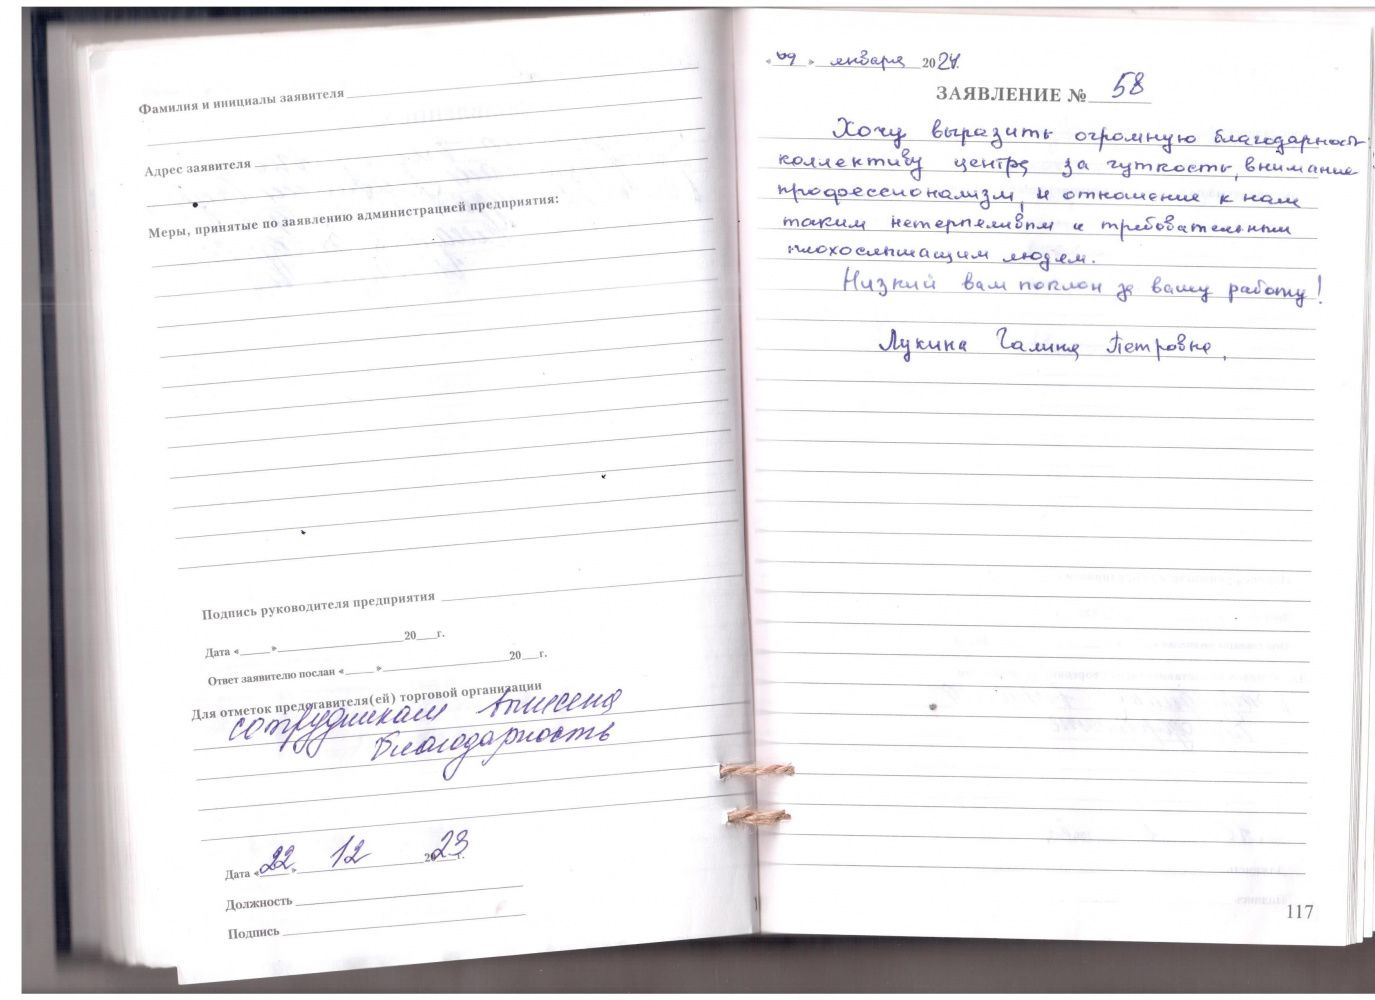 Фамилия и инициалы заявителя
Адрес заявителя
Меры, принятые по заявлению администрацией предприятия:
Подпись руководителя предприятия
Дата « » 20 г.
Ответ заявителю послан « » 20 г.
Для отметок представителя(ей) торговой организации
сотрудникам
благодарность
Дата « 22 » 12 2023 г.
Должность
Подпись
« 09 » января 2024.
ЗАЯВЛЕНИЕ № 58
Хочу выразить огромную благодарность
коллективу центра за чуткость, внимание
профессионализм, и отношение к нам
таким нетерпеливым и требовательным
плохослышащим людям.
Низкий вам поклон за вашу работу!
Лукина Галина Петровна.
117